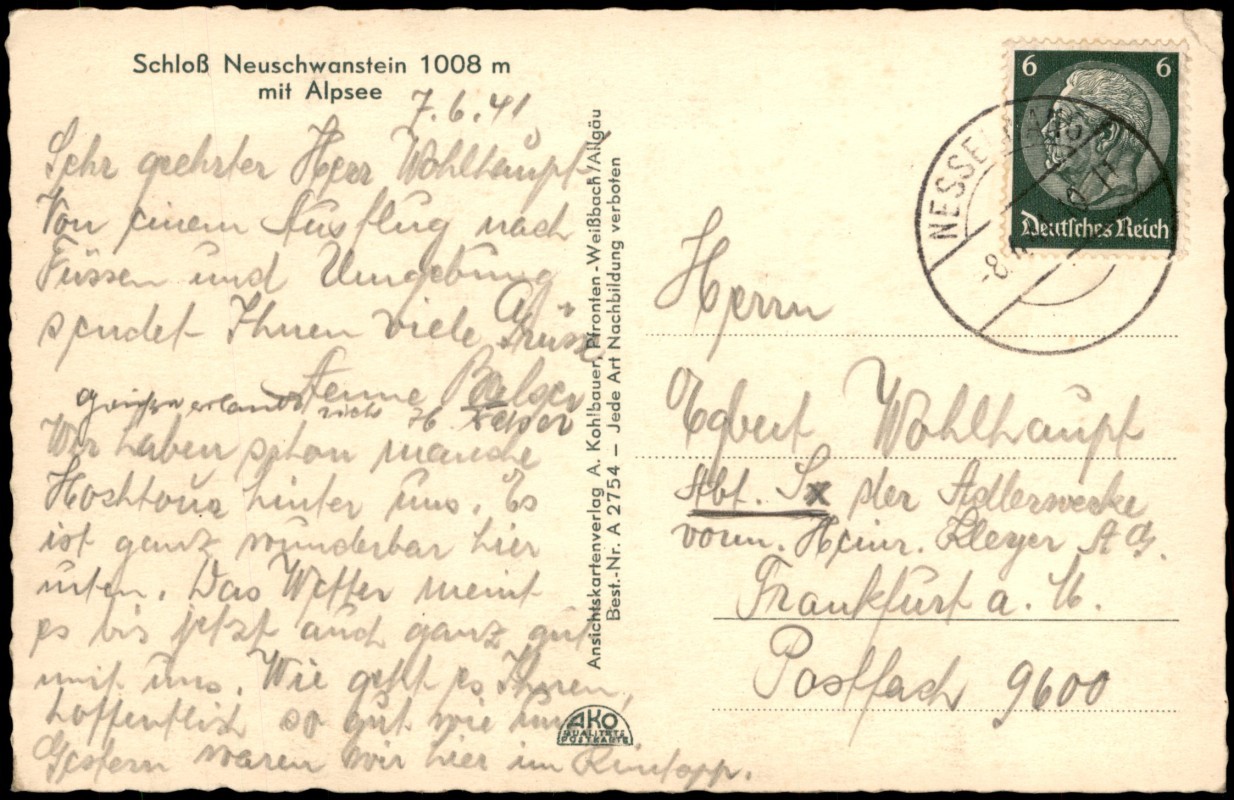 Schloß Neuschwanstein 1008 m
mit Alpsee
7.6.41
Sehr geehrter Herr Wohlhaupt
Von einem Ausflug nach
Füssen und Umgebung
sendet Ihnen viele Grüsse
Aenne Balser
Wir haben schon manche
Hochtour hinter uns. Es
ist ganz wunderbar hier
unten. Das Wetter meint
es bis jetzt auch ganz gut
mit uns. Wie geht es Ihnen,
hoffentlich so gut wie uns
Gestern waren wir hier im Kintopp.
Ansichtskartenverlag A. Kohlbauer, Pfronten-Weißbach/Allgäu
Best.-Nr. A 2754 – Jede Art Nachbildung verboten
AKO
QUALITÄTS
POSTKARTE
6 6
Deutsches Reich
NESSELWANG
-8.
Herrn
Egbert Wohlhaupt
Abt. Sx der Adlerwerke
vorm. Heinr. Kleyer AG.
Frankfurt a. M.
Postfach 9600